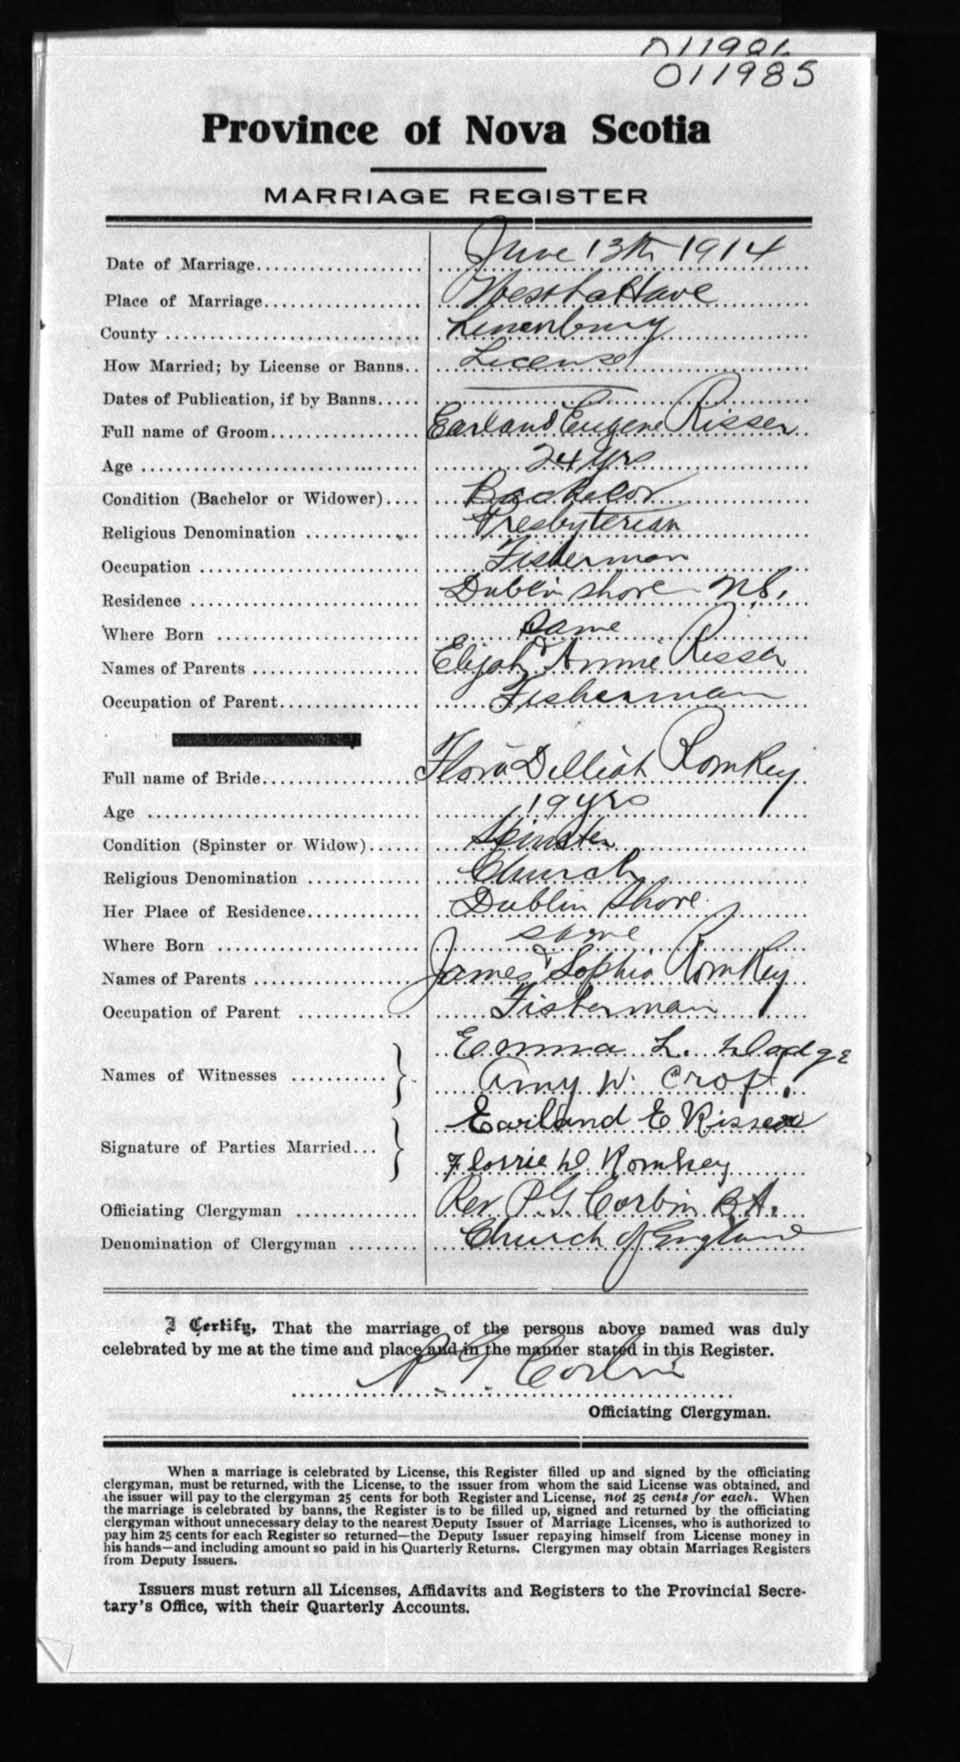 011985
Province of Nova Scotia
MARRIAGE REGISTER
Date of Marriage.................... June 13th 1914
Place of Marriage................... West LaHave
County ............................. Lunenburg
How Married; by License or Banns.. License
Dates of Publication, if by Banns.....
Full name of Groom.................. Earland Eugene Risser
Age ................................ 24 yrs
Condition (Bachelor or Widower).... Bachelor
Religious Denomination ............ Presbyterian
Occupation ......................... Fisherman
Residence .......................... Dublin Shore N.S.
Where Born ......................... Same
Names of Parents ................... Elijah & Annie Risser
Occupation of Parent................ Fisherman
Full name of Bride.................. Flora Dilliah Romkey
Age ................................ 19 yrs
Condition (Spinster or Widow)...... Spinster
Religious Denomination ............ Church
Her Place of Residence............. Dublin Shore
Where Born ......................... same
Names of Parents ................... James & Sophia Romkey
Occupation of Parent ............... Fisherman
Names of Witnesses ........... } Emma L.
Amy W. Croft.
Signature of Parties Married... } Earland E Risser
Florrie D Romkey
Officiating Clergyman .............. Rev P.G. Corbin B.A.
Denomination of Clergyman ........ Church of England
I Certify, That the marriage of the persons above named was duly
celebrated by me at the time and place and in the manner stated in this Register.
P. G. Corbin
Officiating Clergyman.
When a marriage is celebrated by License, this Register filled up and signed by the officiating
clergyman, must be returned, with the License, to the issuer from whom the said License was obtained, and
the issuer will pay to the clergyman 25 cents for both Register and License, not 25 cents for each. When
the marriage is celebrated by banns, the Register is to be filled up, signed and returned by the officiating
clergyman without unnecessary delay to the nearest Deputy Issuer of Marriage Licenses, who is authorized to
pay him 25 cents for each Register so returned—the Deputy Issuer repaying himself from License money in
his hands—and including amount so paid in his Quarterly Returns. Clergymen may obtain Marriages Registers
from Deputy Issuers.
Issuers must return all Licenses, Affidavits and Registers to the Provincial Secre-
tary's Office, with their Quarterly Accounts.